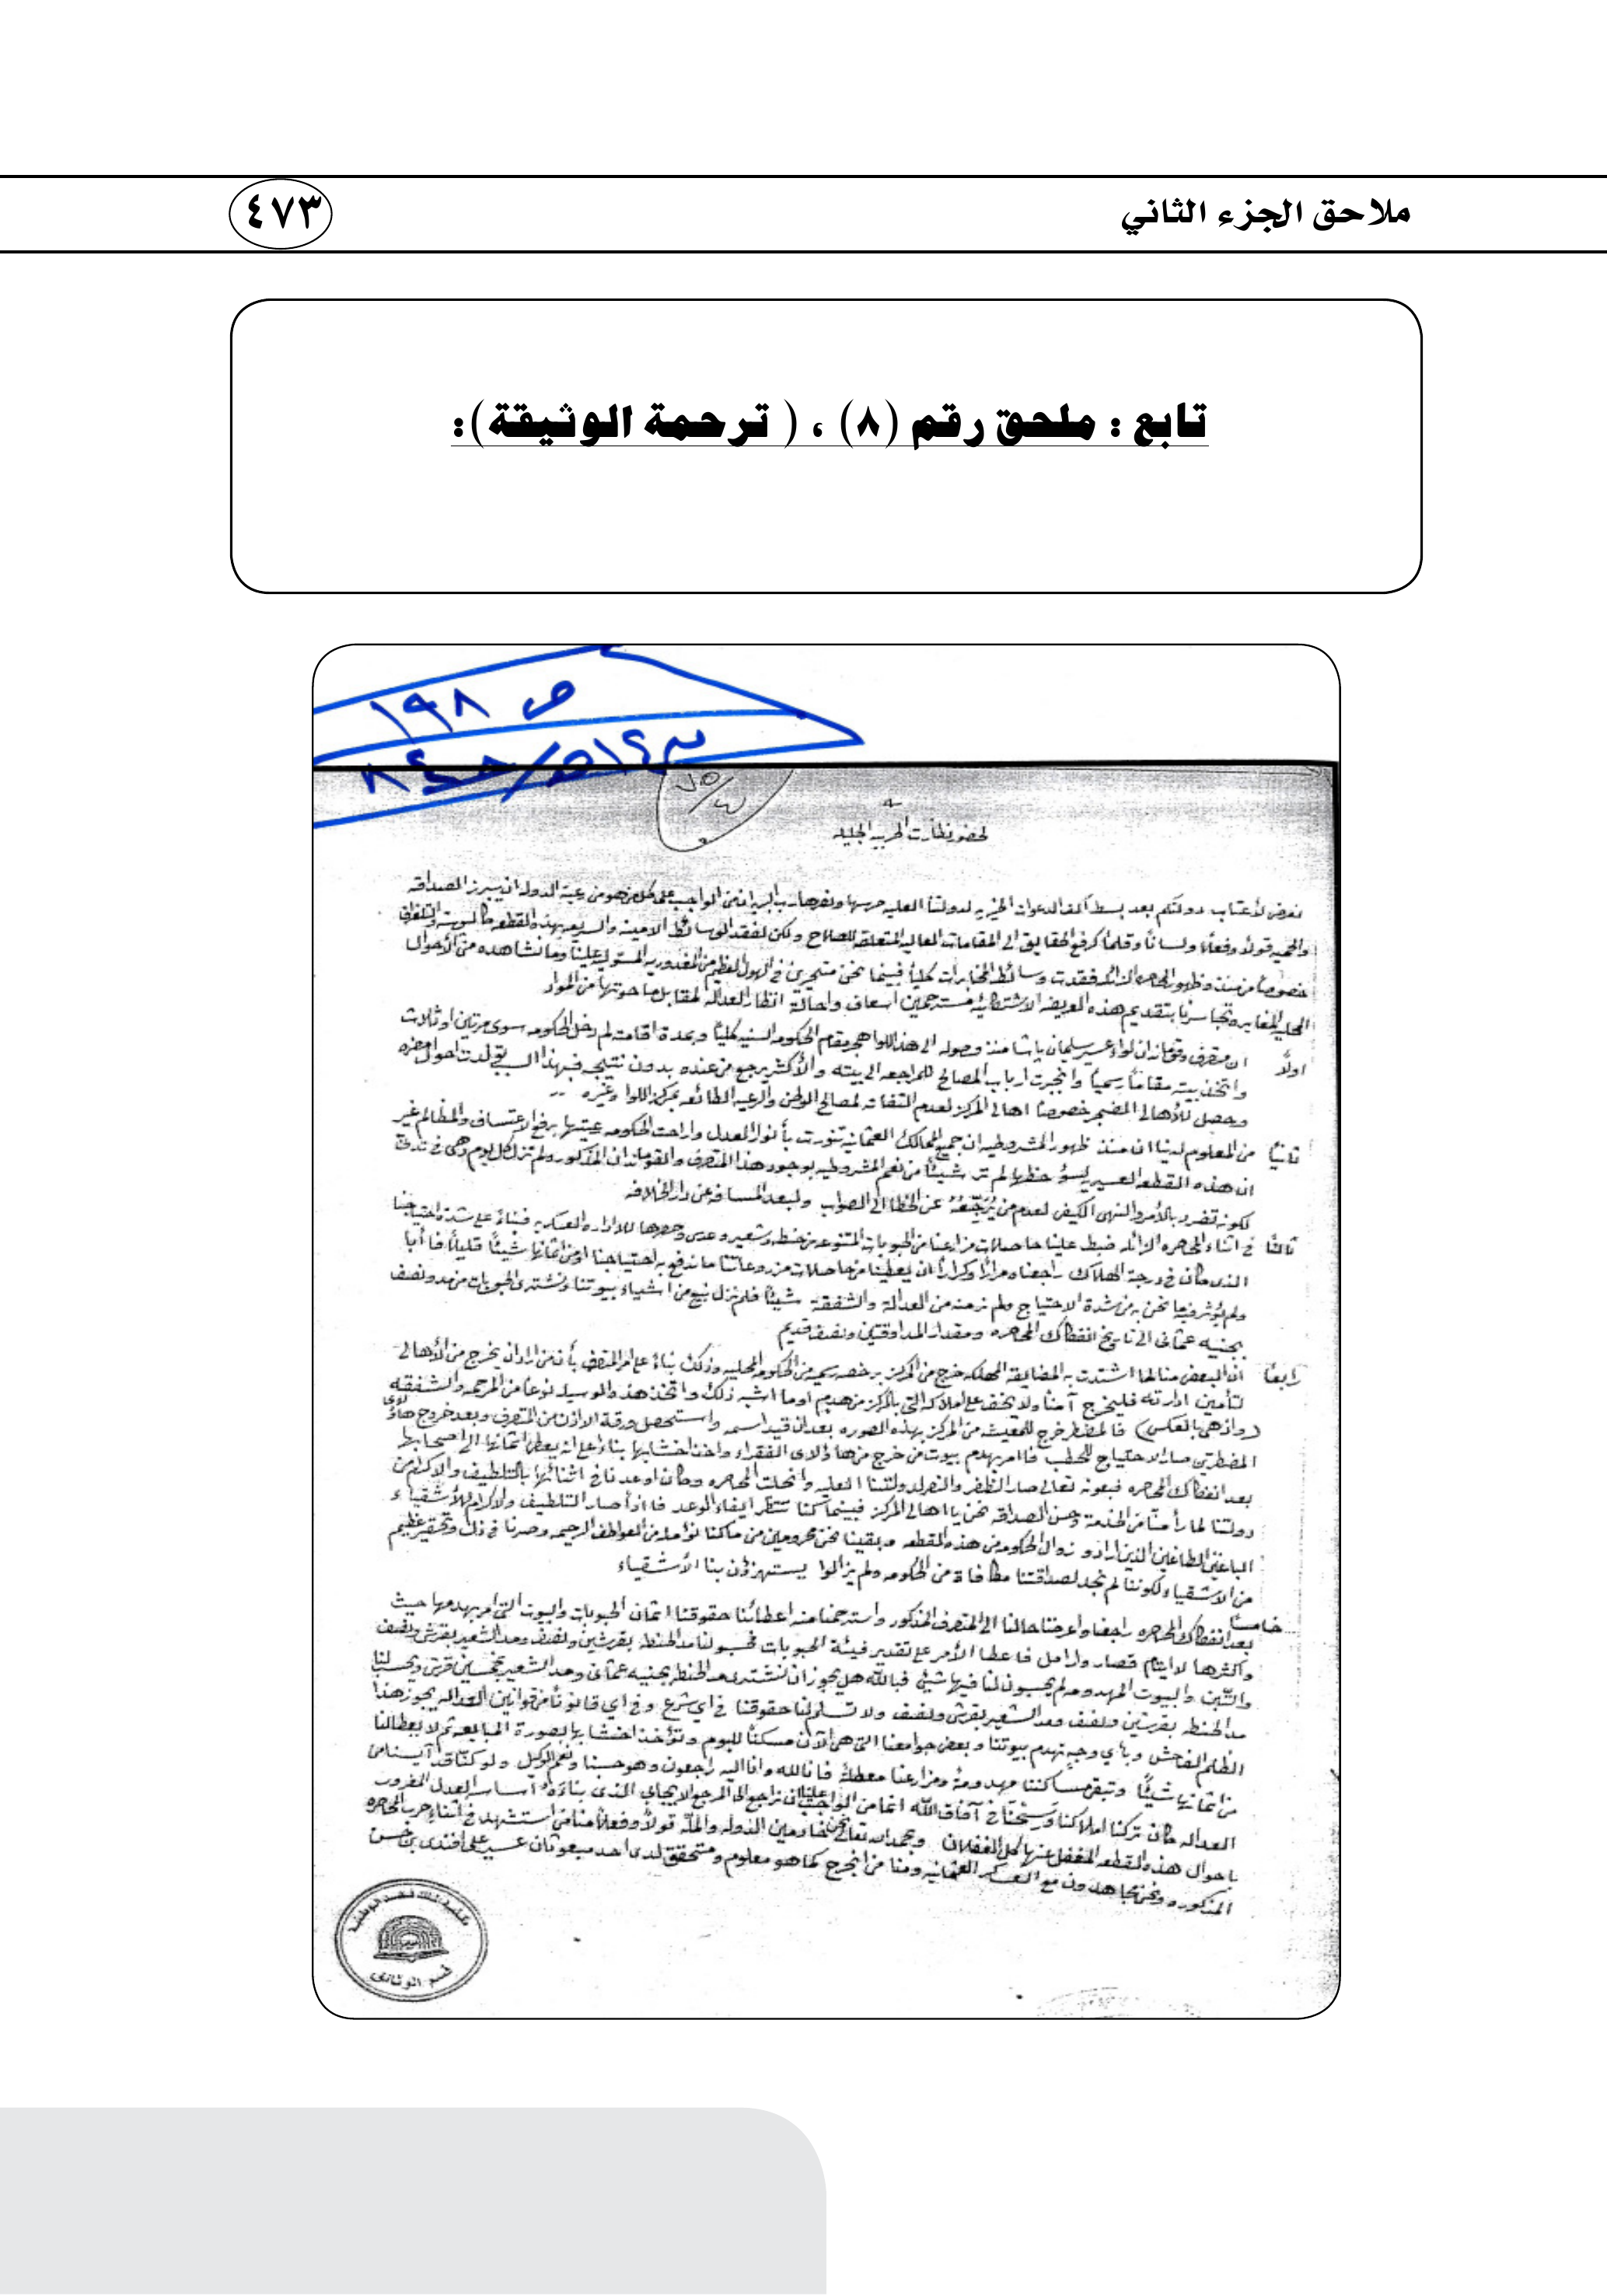 ملاحق الجزء الثاني
٤٧٣
تابع : ملحق رقم (٨) ، ( ترحمة الوثيقة):
ص ١٩٨
لحضور نظارت الحربيه الجليله
نعرض لأعتاب دولتكم بعد بسط اكف الدعوات الخيريه لدولتنا العليه حرسها ونصرها رب البريه ان من الواجب على كل من هو من رعية الدوله ان يبرز الصداقه
والحميه قولاً وفعلاً ولساناً وقلماً كرفع الحقايق الى المقامات العاليه المتعلقه للصلاح ولكن لفقد الوسائط الامينه والسريعه بهذه القطعه كالبوسته والتلغراف
خصوصاً من منذ ظهور المحاصره الزائله فقدت وسائط المخابرات كلياً فبينما نحن متحيرين في الهول العظيم من المغدوريه المستوليه علينا وما نشاهده من الأحوال
المحليه المغايره تجاسرنا بتقديم هذه العريضه الاشتكائيه مسترحمين اسعاف واحالة انظار العداله لمقابل ما حوتها من المواد
اولاً ان متصرف وقوماندان لواء عسير سليمان باشا منذ وصوله الى هذا اللوا هجر مقام الحكومه السنيه كلياً وبمدة اقامته لم يدخل الحكومه سوى مرتين او ثلاث
واتخذ بيته مقاماً رسمياً وانجبرت ارباب المصالح للمراجعه الى بيته والأكثر يرجع من عنده بدون نتيجه فبهذا السبب تولدت احوال مضره
وحصل للأهالي الضجر خصوصاً اهالي المركز لعدم التفاته لمصالح الوطن والرعيه الطائعه بمركز اللوا وغيره
ثانياً من المعلوم لدينا ان منذ ظهور المشروطيه ان جميع الممالك العثمانيه تنورت بأنوار العدل واراحت الحكومه رعيتها برفع الاعتساف والمظالم غير
ان هذه القطعه العسيريه لسوء حظها لم تر شيئاً من نعم المشروطيه بوجود هذا المتصرف والقوماندان المذكور ولم تزل كل يوم وهي في تدني
لكونه تفرد بالأمر والنهي الكيفي لعدم من يرجعه عن الخطا الى الصواب ولبعد المسافه عن دار الخلافه
ثالثاً في اثناء المحاصره الزائله ضبط علينا حاصلات مزارعنا من الحبوبات المتنوعه من حنطه وشعير وعدس وحصرها للاداره العسكريه فبناءً على شدة احتياجنا
الذي كان في درجة الهلاك راجعناه مراراً وكراراً ان يعطينا من حاصلات مزروعاتنا ما ندفع به احتياجنا او من اثمانها شيئاً قليلاً فأبا
ولم يؤثر فيه ما نحن به من شدة الاحتياج ولم نر منه من العدالة والشفقة شيئاً فلم نزل نبيع من اشياء بيوتنا ونشتري الحبوبات من مد ونصف
بجنيه عثماني الى تاريخ انفكاك المحاصره ومقدار المد اوقتين ونصف قديم
رابعاً ان البعض منا لما اشتدت به المضايقة المهلكه خرج من المركز برخصه رسميه من الحكومه المحليه وذلك بناءً على امر المتصرف بأن من اراد ان يخرج من الأهالي
لتأمين ادارته فليخرج آمناً ولا يخف على املاكه التي بالمركز من هدم او ما اشبه ذلك واتخذ هذه الوسيله نوعاً من المرحمه والشفقه
(واذ هي بالعكس) فالمضطر خرج للمعيشه من المركز بهذه الصوره بعد ان قيد اسمه واستحصل ورقة الاذن من المتصرف وبعد خروج هاؤلاي
المضطرين صار الاحتياج للحطب فأمر بهدم بيوت من خرج من هاؤلاي الفقراء واخذ اخشابها بناءً على انه يعطي اثمانها الى اصحابها
بعد انفكاك المحاصره فبعونه تعالى صار الظفر والنصر لدولتنا العليه وانحلت المحاصره وكان اوعدنا في اثنائها بالتلطيف والاكرام من
دولتنا لما رأ منا من الخدمة وحسن الصداقه نحن يا اهالي المركز فبينما كنا ننتظر ايفاء الوعد فاذاً صار التلطيف والاكرام للأشقياء
الباغين الطاغين الذين ارادو زوال الحكومه من هذه القطعه وبقينا نحن محرومين من ما كنا نؤمله من العواطف الرحيمه وصرنا في ذلك وتحقير عظيم
من الاشقياء لكوننا لم نجد لصداقتنا مكافاة من الحكومه ولم يزالوا يستهزؤن بنا الأشقياء
خامساً بعد انفكاك المحاصره راجعنا واعرضنا حالنا الى المتصرف المذكور واسترحمنا منه اعطائنا حقوقنا اثمان الحبوبات والبيوت التي امر بهدمها حيث
واكثرها لايتام قصار وارامل فاعطا الأمر على تقدير فيئة الحبوبات فحسبو لنا مد الحنطه بقرشين ونصف ومد الشعير بقرش ونصف
والتبن والبيوت المهدومه لم يحسبون لنا فيها شيئ فبالله هل يجوز ان نشتري مد الحنطه بجنيه عثماني ومد الشعير بخمسين قرش ويحسب لنا
مد الحنطه بقرشين ونصف ومد الشعير بقرش ونصف ولا تسلم لنا حقوقنا في اي شرع وفي اي قانوناً من قوانين العداله يجوز هذا
الظلم الفاحش وبأي وجه تهدم بيوتنا وبعض جوامعنا التي هي الآن مسكناً للبوم وتؤخذ اخشابها بصورة المبايعه ثم لا يعطا لنا
من اثمانها شيئاً وتبقى مساكننا مهدومة ومزارعنا معطلة فانا لله وانا اليه راجعون وهو حسبنا ونعم الوكيل ولو كنا قد آيسنا من
العداله كان تركنا املاكنا وسحنا في آفاق الله انما من الواجب علينا ان نراجع الى المرجع الايجابي الذي بناؤه أساس العدل
باحوال هذه القطعه المغفل عنها كل الغفلان وبحمد الله تعالى نحن خادمين الدوله والملة قولاً وفعلاً منا من استشهد في اثناء حرب المحاصره
المذكوره ونحن مجاهدون مع العسكر العثمانيه ومنا من انجرح كما هو معلوم ومتحقق لدى احد مبعوثان عسير على افندى بن حسن
مكتبة الملك فهد الوطنية
قسم الوثائق